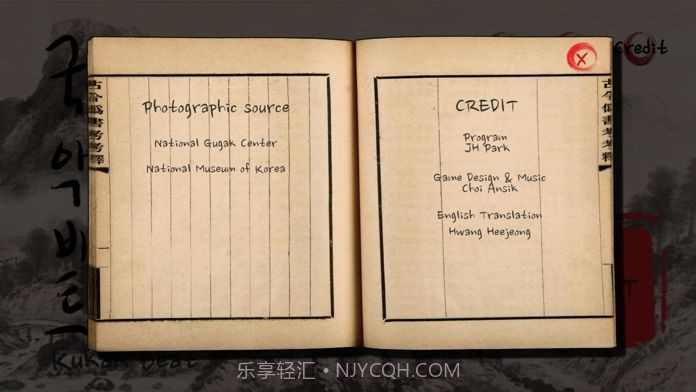 국악비트
Credit
古今僞書考考釋
Photographic source
National Gugak Center
National Museum of Korea
CREDIT
Program
JH Park
Game Design & Music
Choi Ansik
English Translation
Hwang Heejeong
古今僞書考考釋
X
T
Kukak Beat
乐享轻汇 • NJYCQH.COM